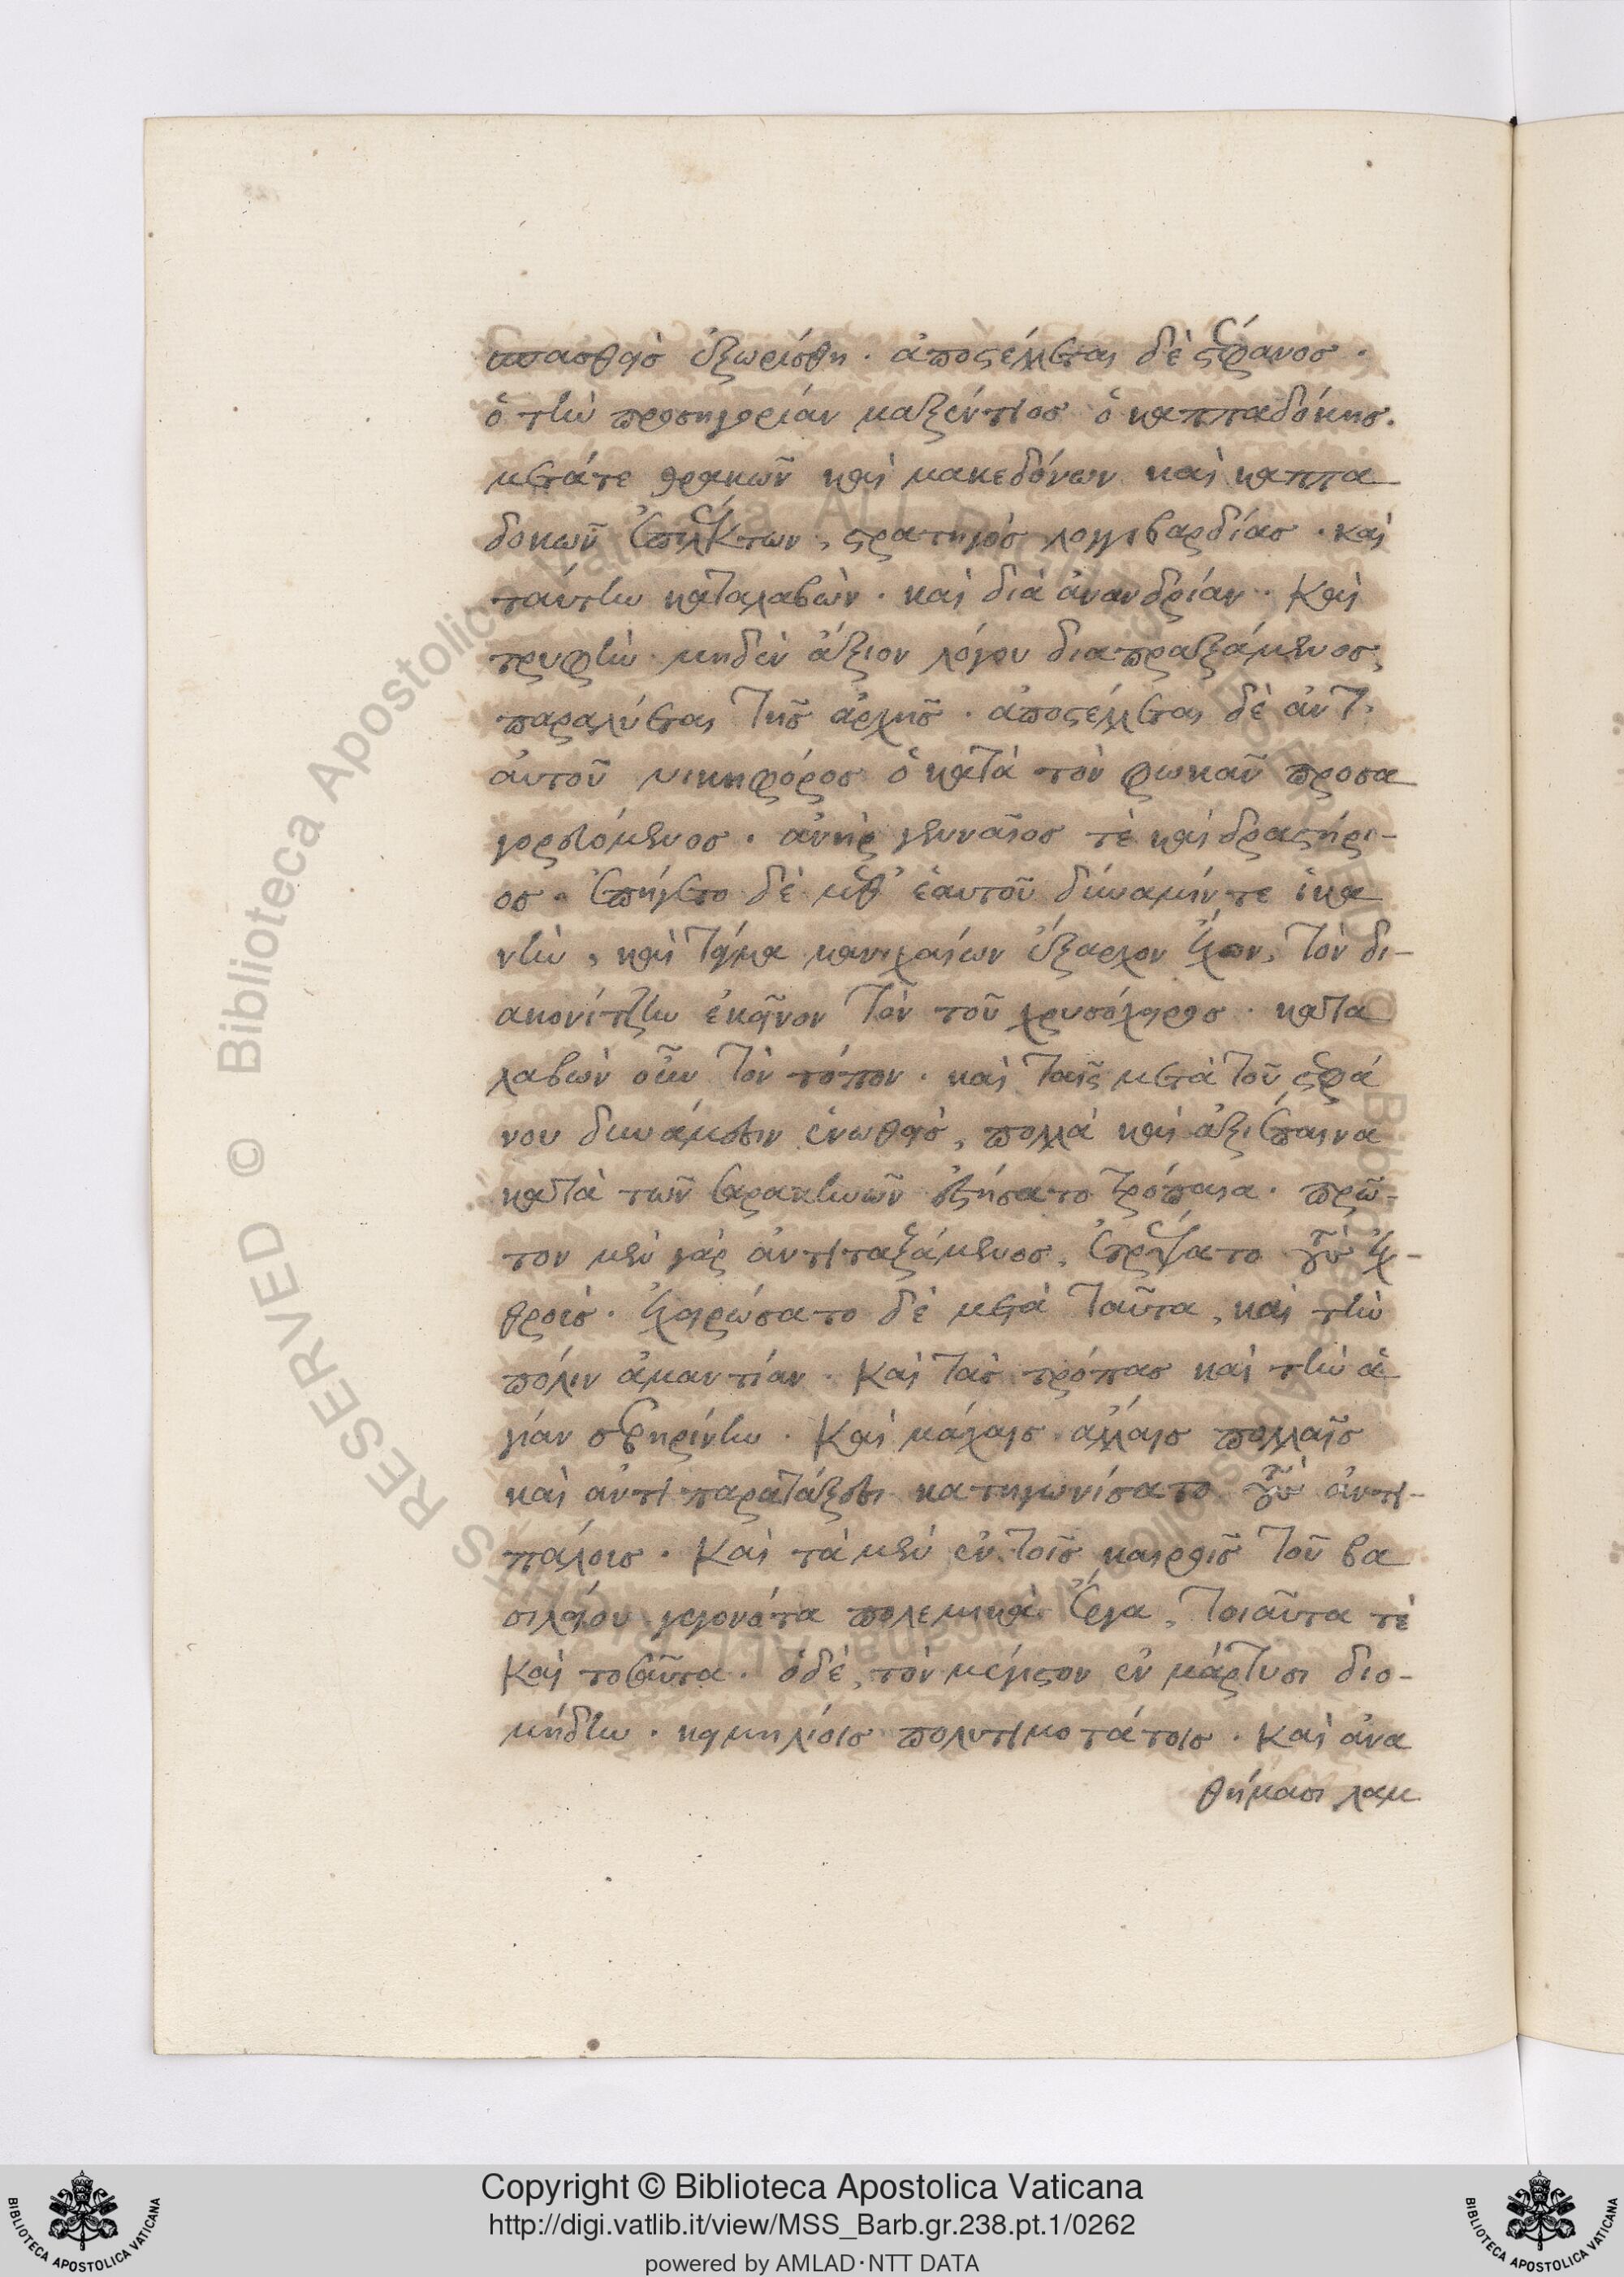 σπασθεὶς ἐξωρίσθη. ἀποστέλλεται δὲ στέφανος.
ὁ τὴν προσηγορίαν μαξέντιος ὁ καππαδόκης.
μετάτε θρακῶν καὶ μακεδόνων καὶ καππα
δοκῶν ἐπιλέκτων, στρατηγὸς λογγιβαρδίας. καὶ
ταύτην καταλαβὼν. καὶ διὰ ἀνανδρίαν. καὶ
τρυφὴν μηδὲν ἄξιον λόγου διαπραξάμενος,
παραλύεται τῆς ἀρχῆς. ἀποστέλλεται δὲ ἀντ'
αὐτοῦ νικηφόρος ὁ κατὰ τὸν φωκᾶν προσα
γορευόμενος. ἀνὴρ γενναῖος τὲ καὶ δραστήρι-
ος. ἐπήγετο δὲ μεθ' ἑαυτοῦ δύναμίν τε ἱκα
νὴν, καὶ τάγμα μανιχαίων ἔξαρχον ἔχον, τὸν δι-
ακονίτζην ἐκεῖνον τὸν τοῦ χρυσόχειρος. κατα
λαβὼν οὖν τὸν τόπον. καὶ ταῖς μετὰ τοῦ στεφά
νου δυνάμεσιν ἑνωθεὶς, πολλὰ καὶ ἀξιέπαινα
κατὰ τῶν σαρακηνῶν ἐστήσατο τρόπαια. πρῶ-
τον μὲν γὰρ ἀντιταξάμενος, ἐτρέψατο τοὺς ἐχ-
θροὺς. ἐχειρώσατο δὲ μετὰ ταῦτα, καὶ τὴν
πόλιν ἀμαντίαν. καὶ τὰς τρόπας καὶ τὴν ἁ
γίαν σεβηρίνην. καὶ μάχαις ἄλλαις πολλαῖς
καὶ ἀντιπαρατάξεσι κατηγωνίσατο τοὺς ἀντι-
πάλους. καὶ τὰ μὲν ἐν τοῖς καιροῖς τοῦ βα
σιλείου γεγονότα πολεμικὰ ἔργα, τοιαῦτα τὲ
καὶ τοσαῦτα. ὁδὲ, τὸν μέγιστον ἐν μάρτυσι διο-
μήδην. κειμηλίοις πολυτιμοτάτοις. καὶ ἀνα
θήμασι λαμ
Copyright © Biblioteca Apostolica Vaticana
http://digi.vatlib.it/view/MSS_Barb.gr.238.pt.1/0262
powered by AMLAD·NTT DATA